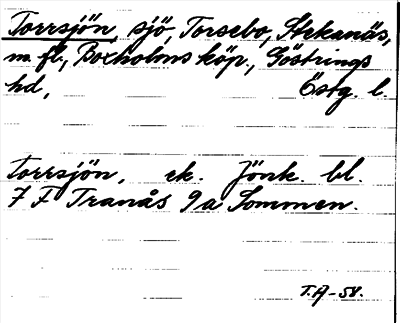 Torrsjön, sjö, Torsebo, Stekanäs,
m. fl., Boxholms köp., Göstrings
hd, Östg. l.
Torrsjön, ek. Jönk. bl.
7 F Tranås 9a Sommen.
T.A-58.